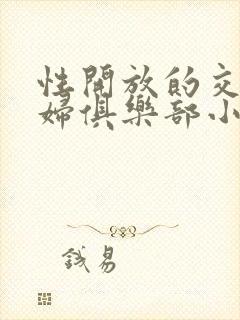 性開放的交
婦俱樂部小
錢易